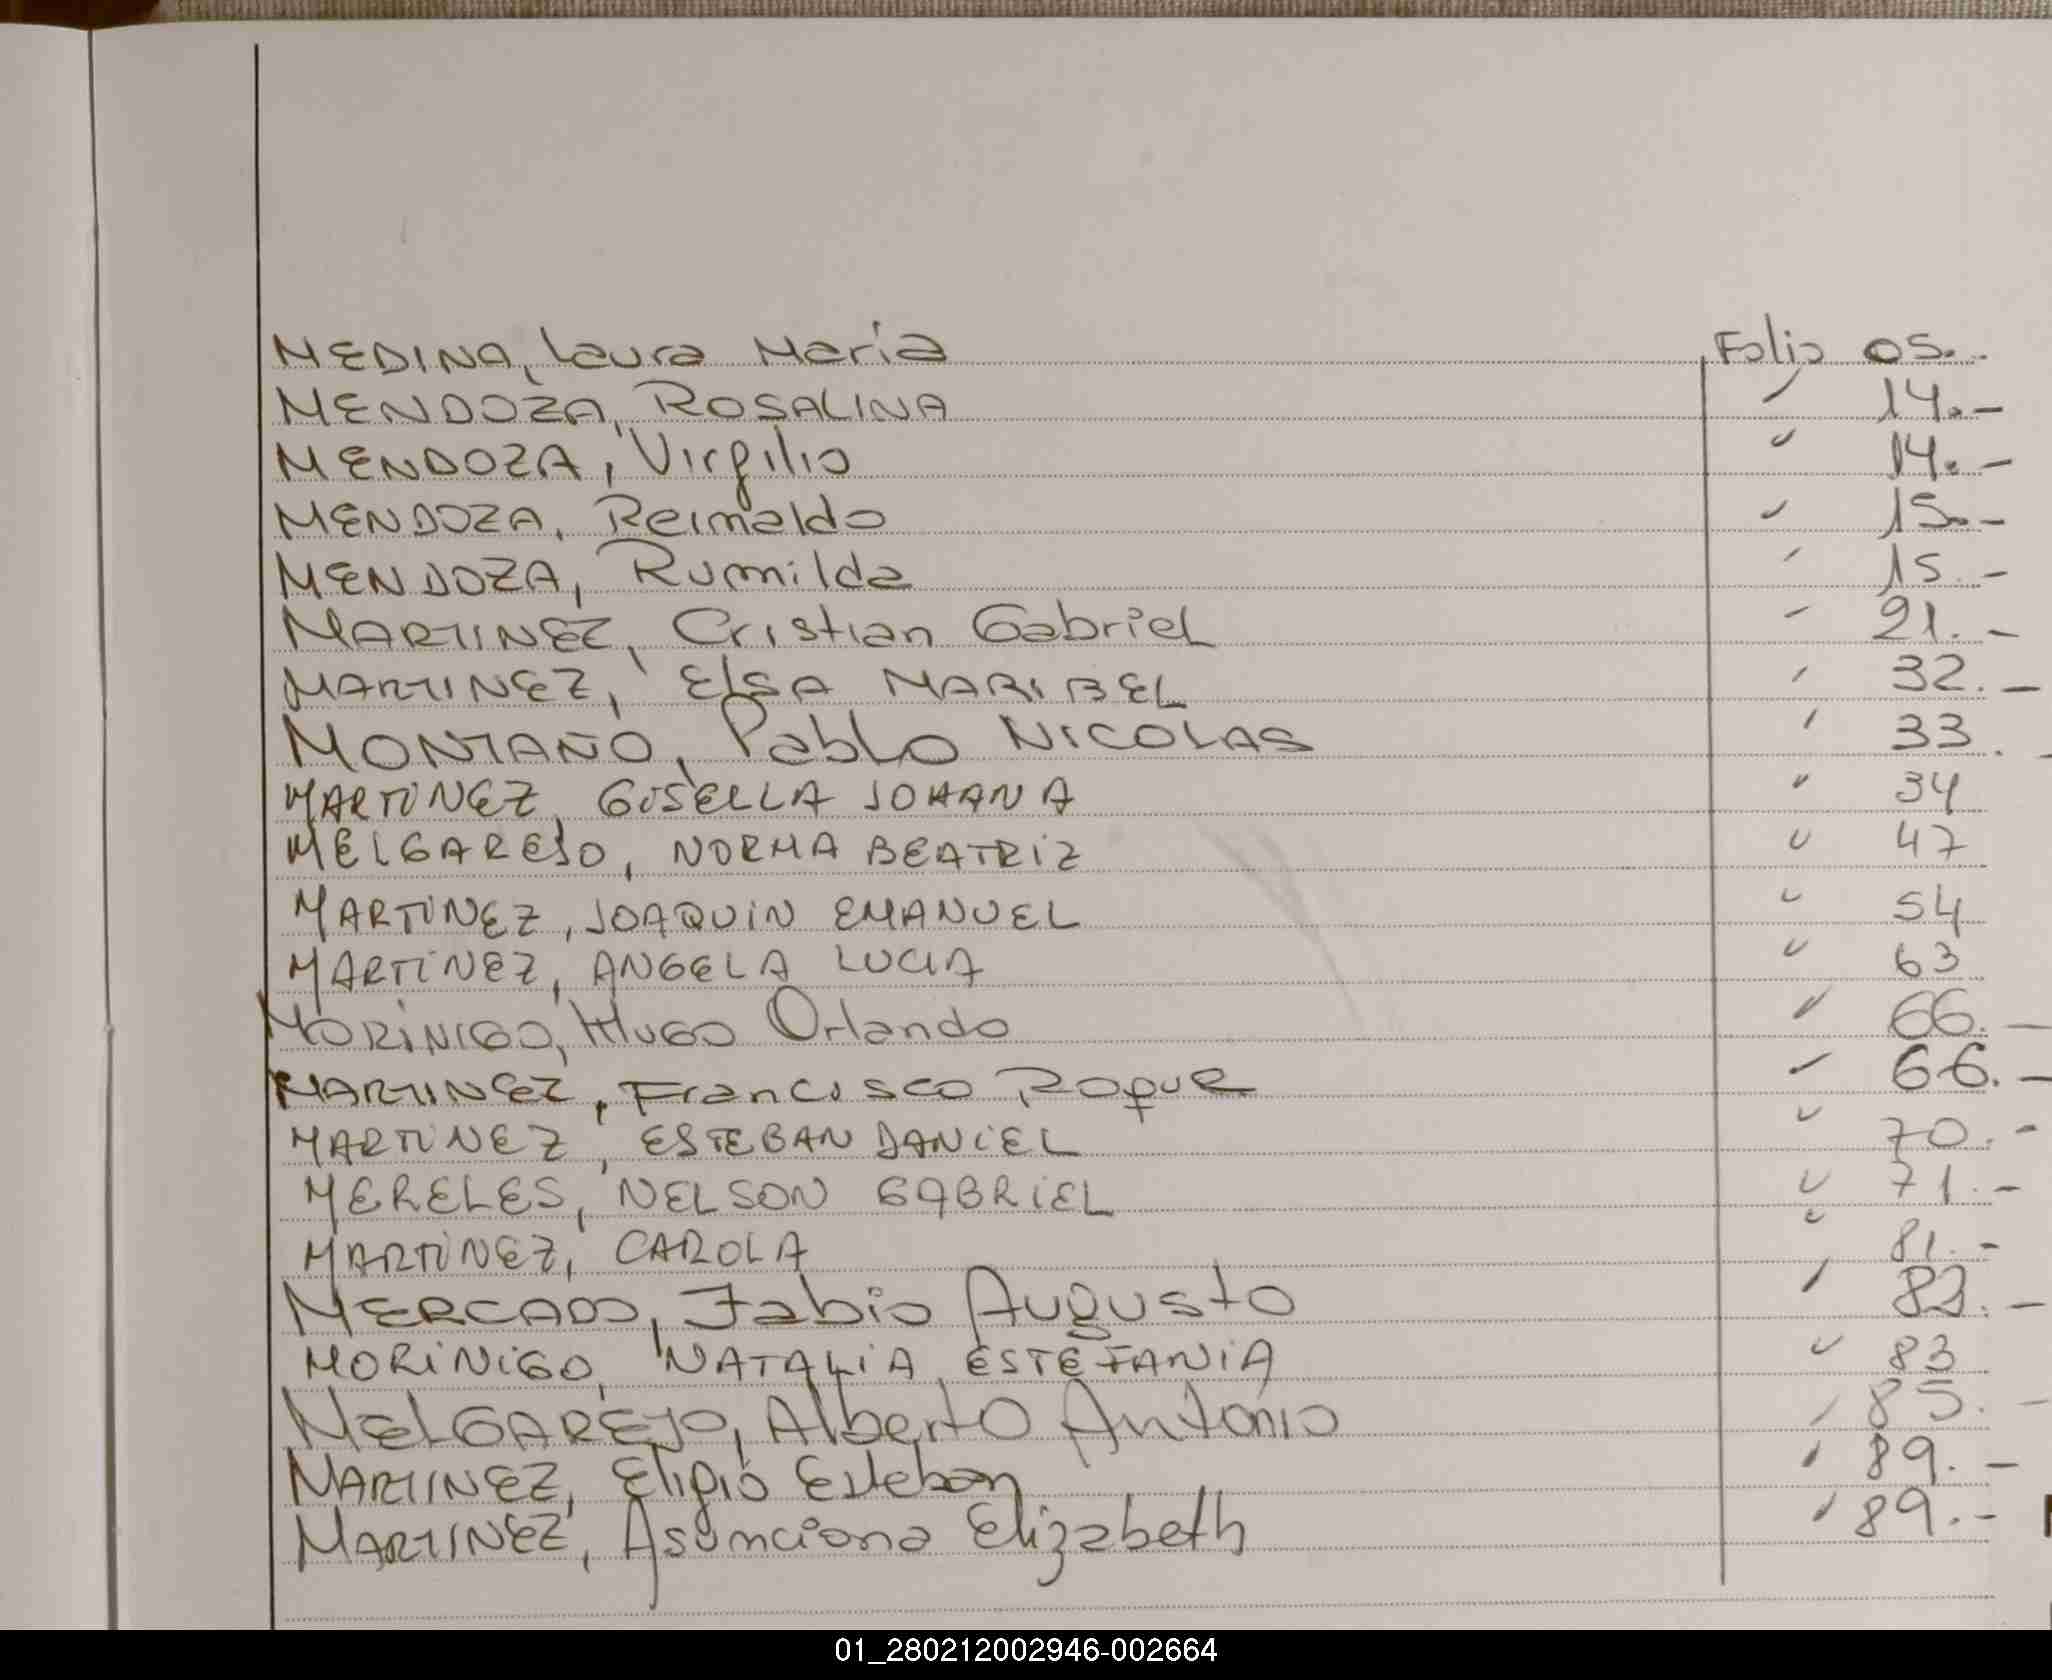 MEDINA, Laura Maria Folio 05.-
MENDOZA, ROSALINA " 14.-
MENDOZA, Virgilio " 14.-
MENDOZA, Reimaldo " 15.-
MENDOZA, Rumilda " 15.-
MARTINEZ, Cristian Gabriel " 21.-
MARTINEZ, ElSA MARIBEL " 32.-
MONTAÑO, Pablo NICOLAS " 33.-
MARTINEZ, GISELLA JOHANA " 34
MELGAREJO, NORMA BEATRIZ " 47
MARTINEZ, JOAQUIN EMANUEL " 54
MARTINEZ, ANGELA LUCIA " 63
MORINIGO, HUGO Orlando " 66.-
MARTINEZ, Francisco Roque " 66.-
MARTINEZ, ESTEBAN DANIEL " 70.-
MERELES, NELSON GABRIEL " 71.-
MARTINEZ, CAROLA " 81.-
MERCADO, Fabio Augusto " 82.-
MORINIGO, NATALIA ESTEFANIA " 83
MELGAREJO, Alberto Antonio " 85.-
MARTINEZ, Eligio Esteban " 89.-
MARTINEZ, Asunciona Elizabeth " 89.-
01_280212002946-002664